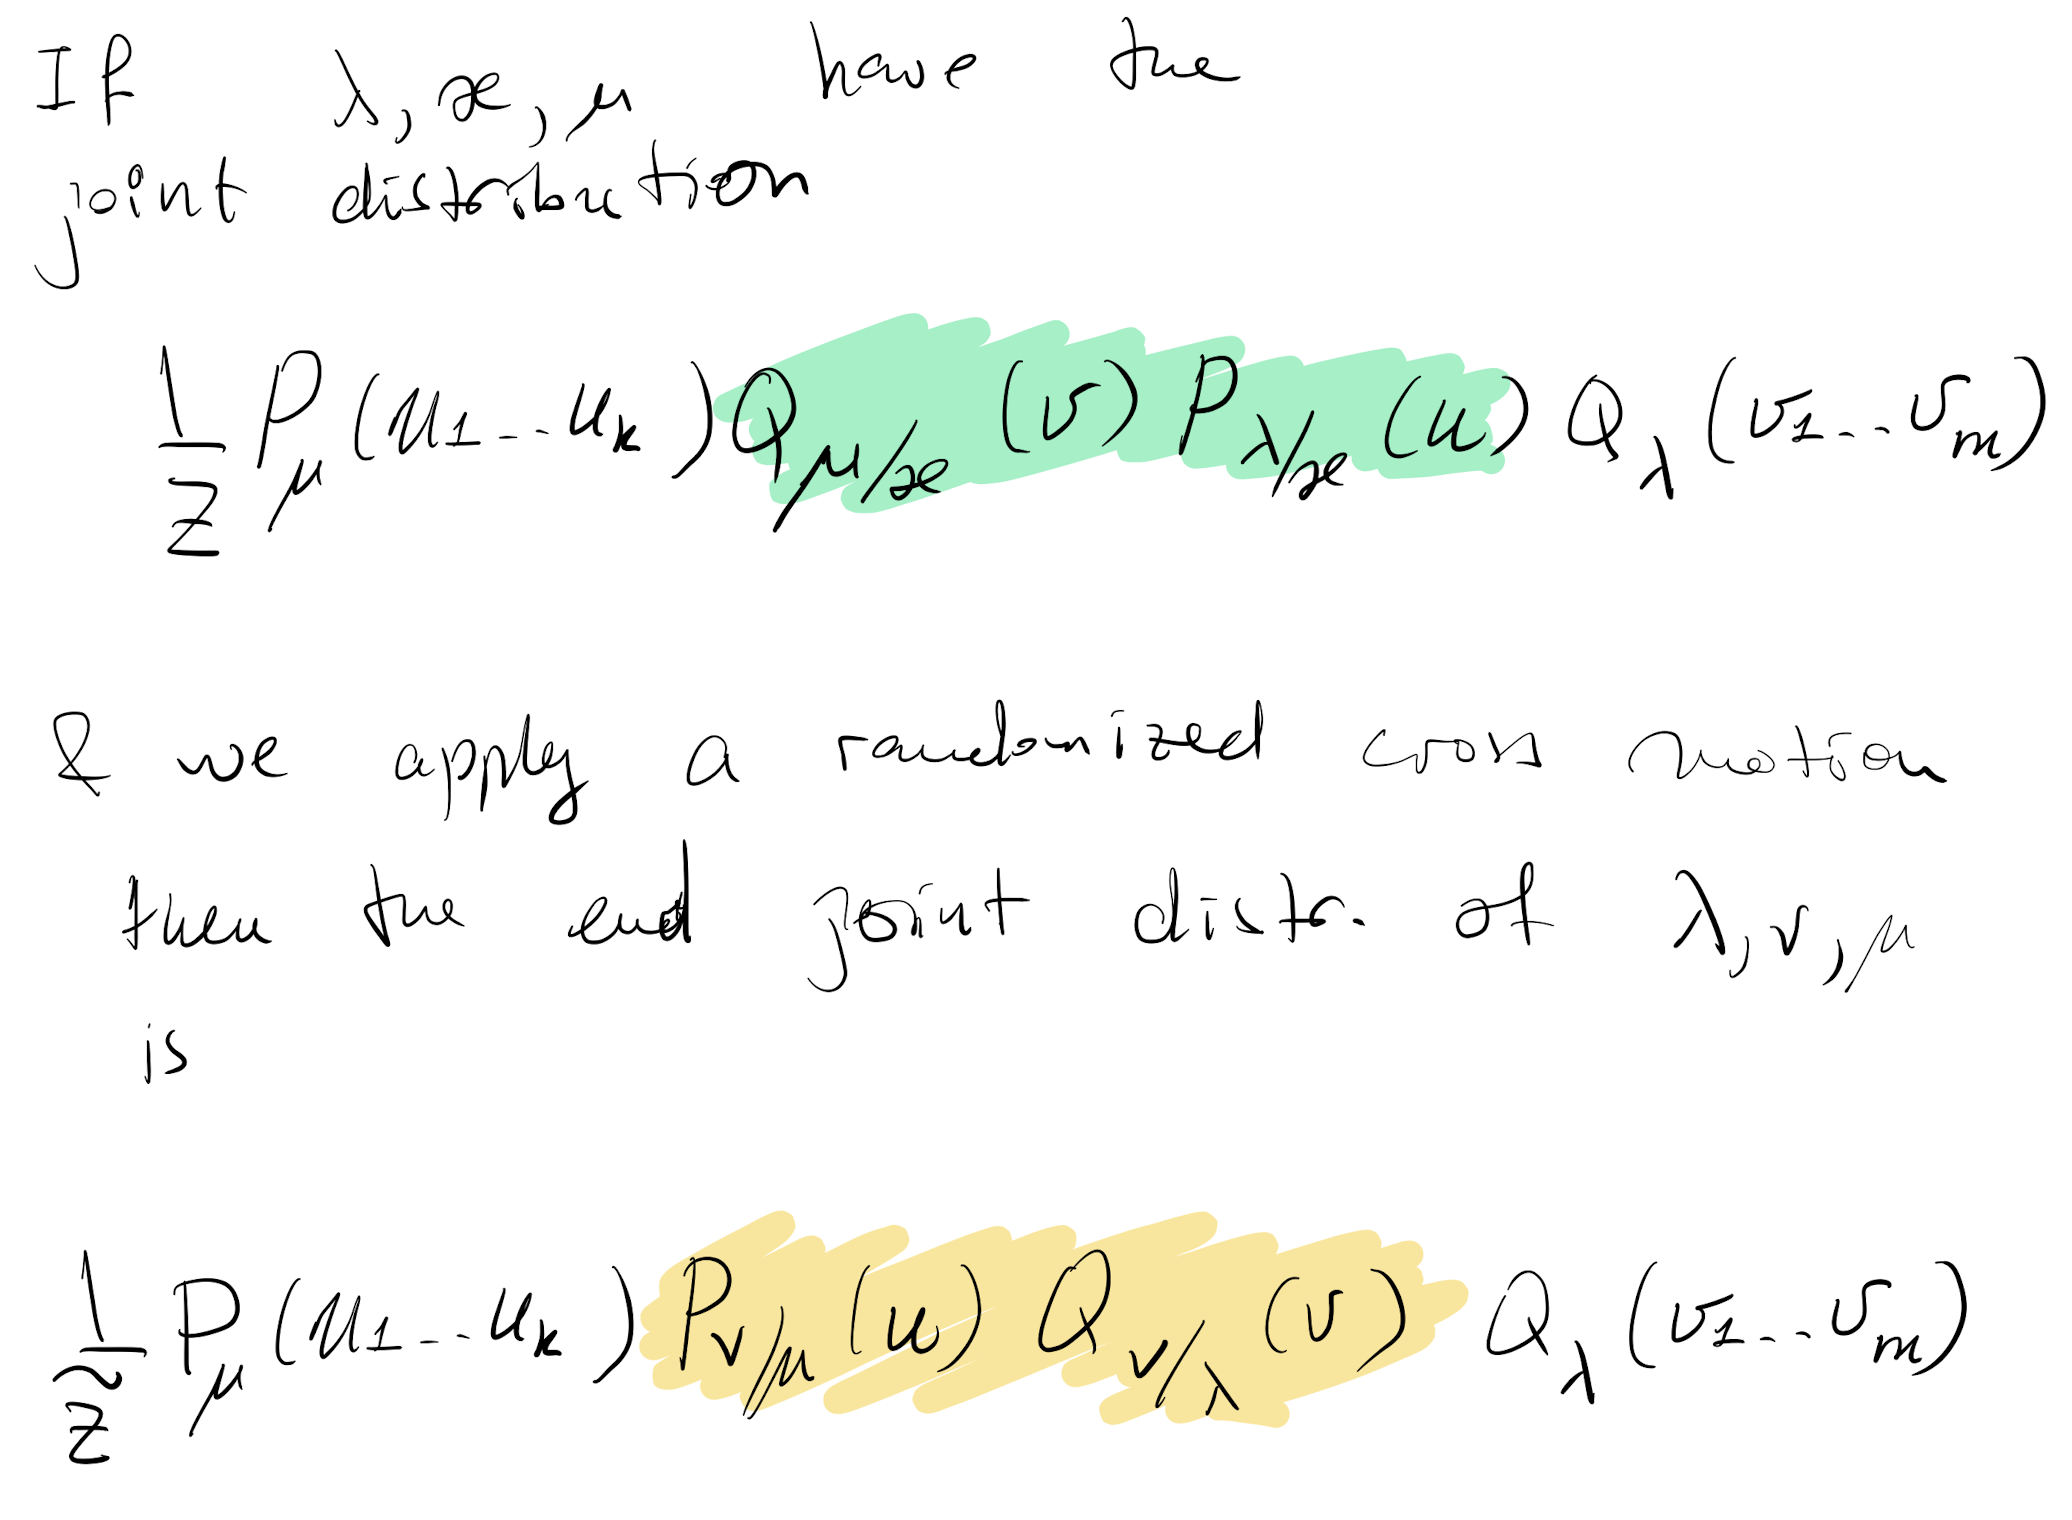 If λ, æ, μ have the
joint distribution
1/Z P_μ (u_1 .. u_k) Q_{μ/æ} (v) P_{λ/æ} (u) Q_λ (v_1 .. v_m)
& we apply a randomized cross motion
then the end joint distr. of λ, ν, μ
is
1/Z̃ P_μ (u_1 .. u_k) P_{ν/μ} (u) Q_{ν/λ} (v) Q_λ (v_1 .. v_m)